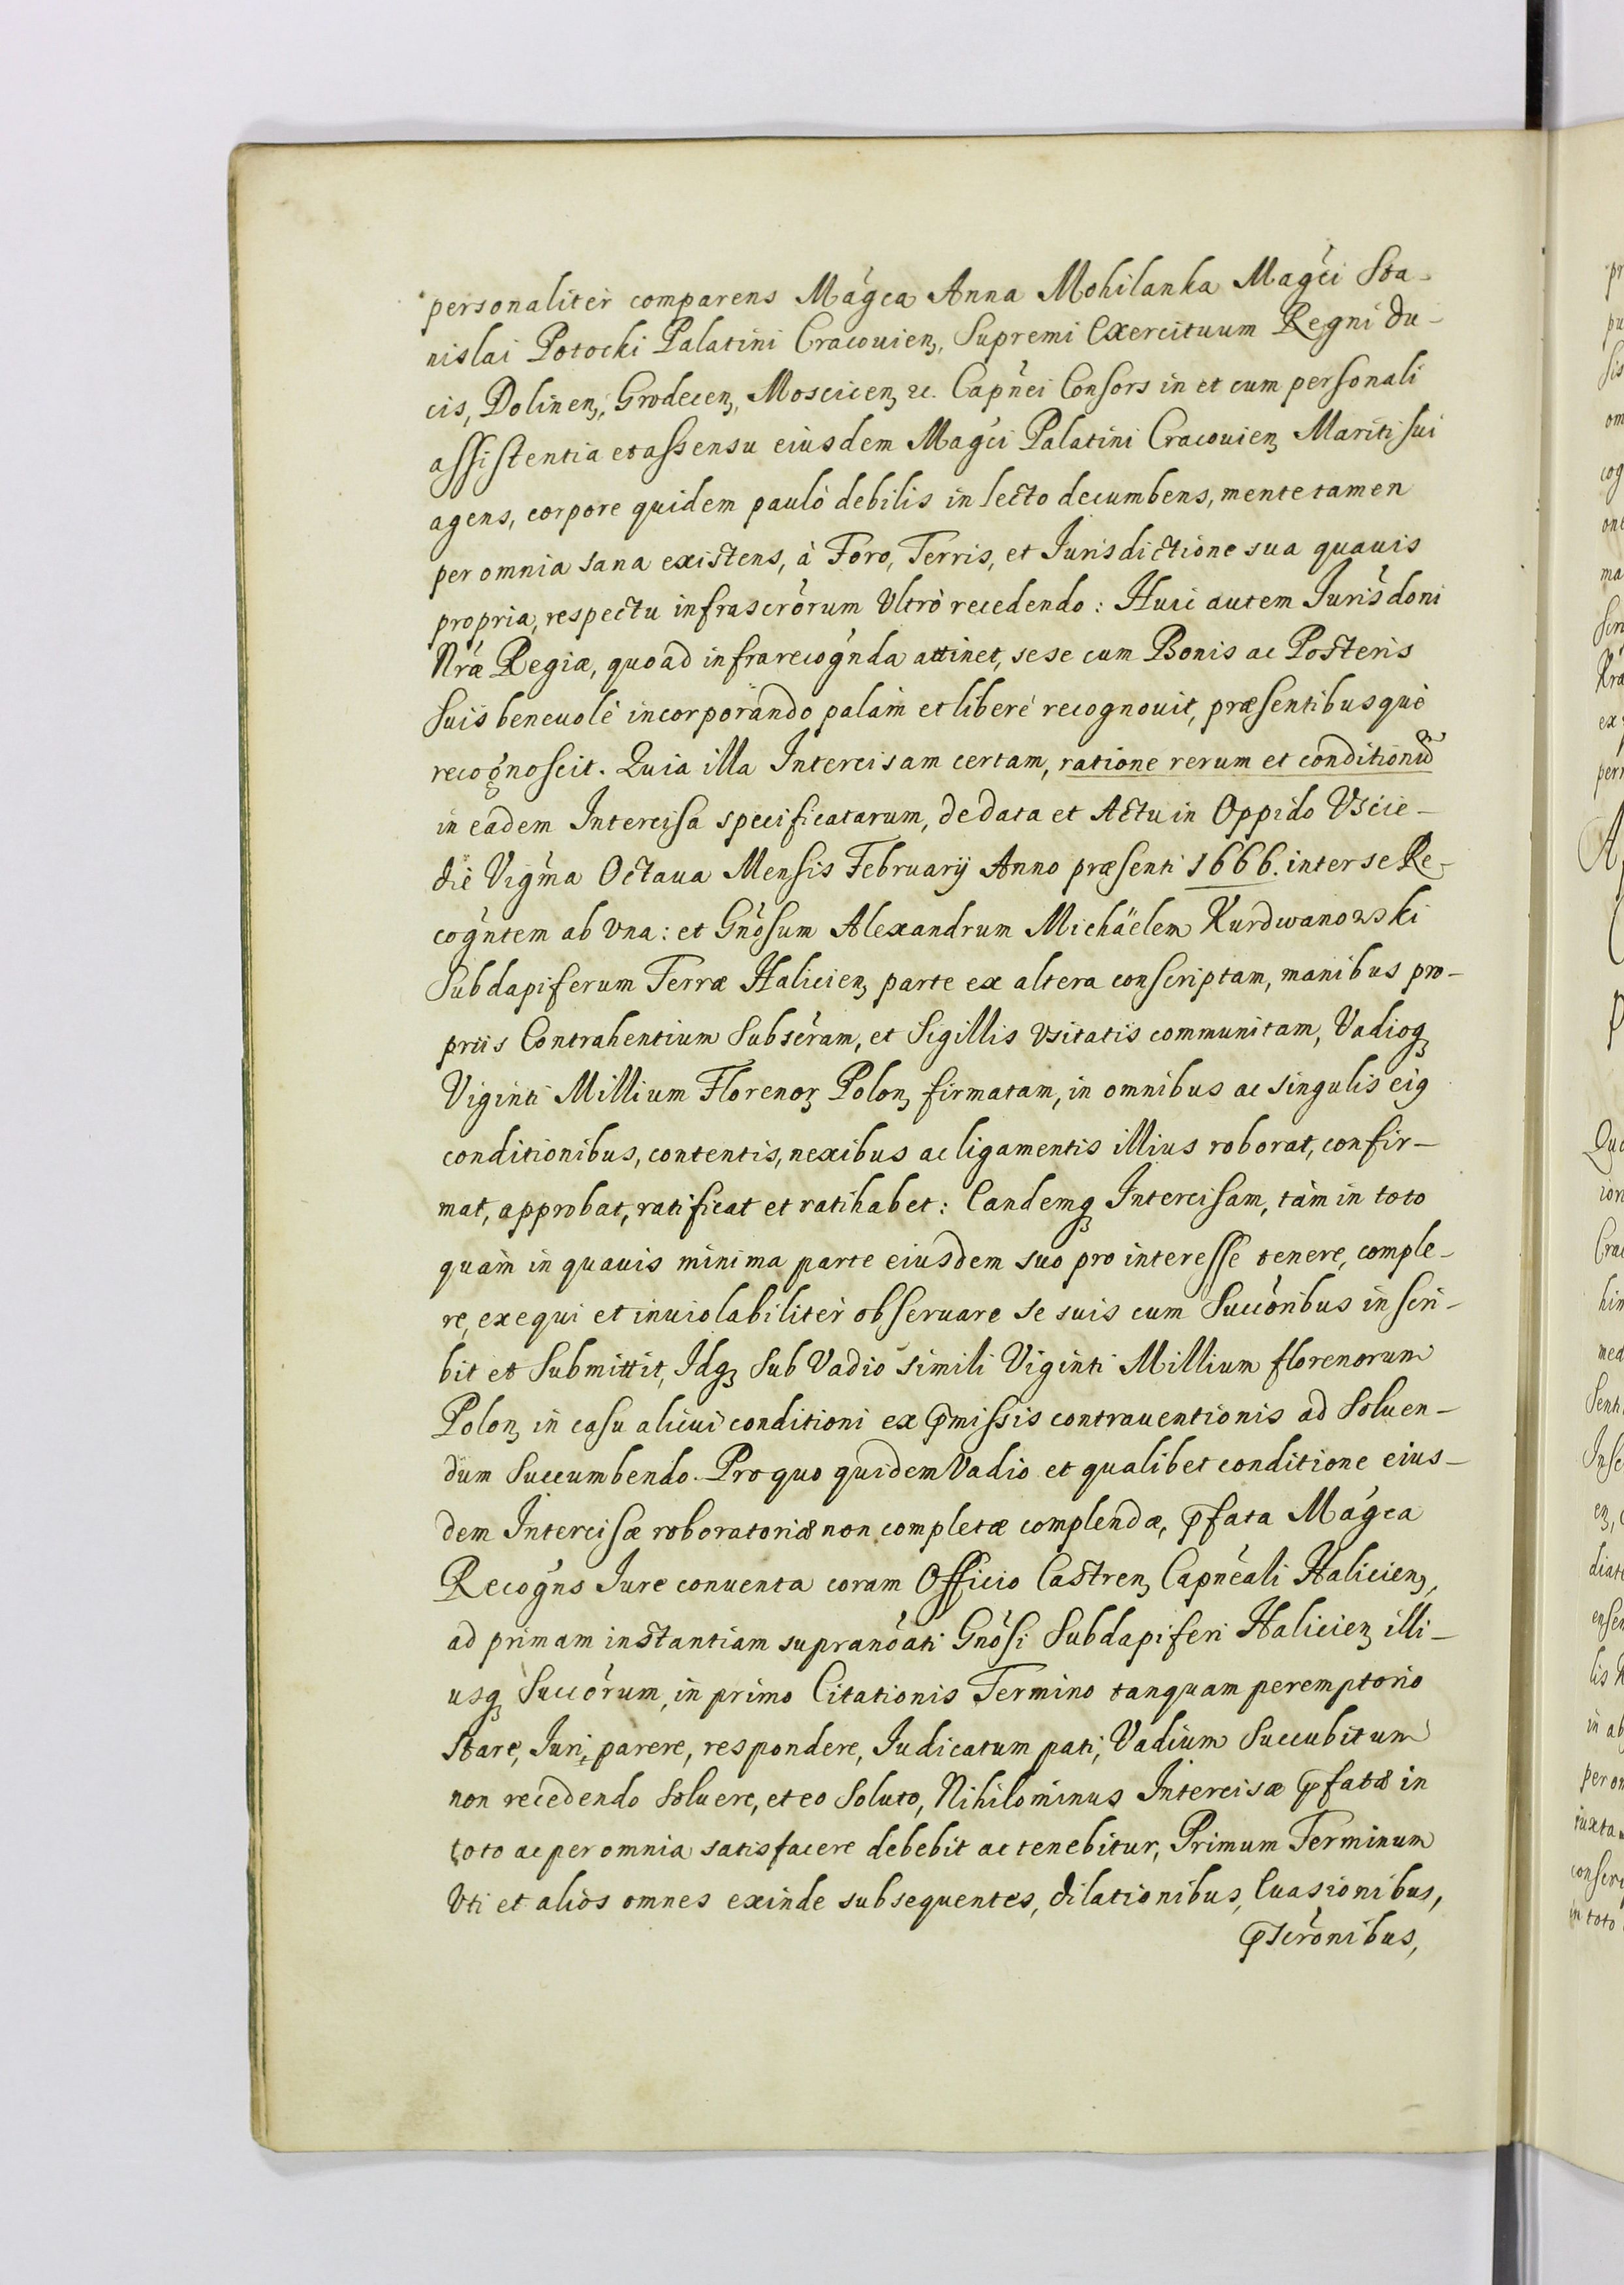 personaliter comparens Mágca Anna Mohilanka Magći Sta-
nislai Potocki Palatini Cracouien, Supremi Exercituum Regni du-
cis, Dolinen, Grodecen, Moscicen, &c. Capnei Consors in et cum personali
assistentia et assensu eiusdem Magći Palatini Cracouien Mariti sui
agens, corpore quidem pauló debilis in lecto decumbens, mente tamen
per omnia sana existens, à Foro, Terris, et Jurisdictione sua quauis
propria, respectu infrascrórum Vltrò recedendo: Huic autem Jurisdoni
Nrǽ Regiæ, quoad infrarecognda attinet, sese cum Bonis ac Posteris
suis beneuolè incorporando palàm et liberè recognouit, præsentibusquè
recognoscit. Quia illa Intercisam certam, ratione rerum et conditionũ
in eadem Intercisa specificatarum, de data et Actu in Oppido Vscie-
die Vigmа Octaua Mensis February Anno præsenti 1666. inter se Re-
cogntem ab vna: et Gnosum Alexandrum Michäelem Kurdwanowski
Subdapiferum Terræ Halicien, parte ex altera conscriptam, manibus pro-
priis Contrahentium Subscram, et Sigillis vsitatis communitam, Vadioq3
Viginti Millium Florenor Polon, firmatam, in omnibus ac singulis ei9
conditionibus, contentis, nexibus ac ligamentis illius roborat, confir-
mat, approbat, ratificat et ratihabet: Eandemq3 Intercisam, tàm in toto
quàm in quauis minima parte eiusdem suo pro interesse tenere, comple-
re, exequi et inuiolabiliter obseruare se suis cum Succóribus inscri-
bit et Submittit, Idq3 Sub Vadio simili Viginti Millium florenorum
Polon, in casu alicui conditioni ex p̄missis contrauentionis ad Soluen-
dum Succumbendo. Pro quo quidem Vadio et qualibet conditione eius-
dem Intercisæ roboratoriæ non completæ complendæ, p̄fata Mágca
Recogns Jure conuenta coram Officio Castren, Capneali Halicien,
ad primam instantiam supranóati Gnósi Subdapiferi Halicien illi-
usq3 Succórum, in primo Citationis Termino tanquam peremptorio
Stare, Juri, parere, respondere, Judicatum pati, Vadium Succubitum
non recedendo soluere, et eo Soluto, Nihilominus Intercisæ p̄fatæ in
toto ac per omnia satisfacere debebit ac tenebitur, Primum Terminum
Vti et aliòs omnes exinde subsequentes, dilationibus, Euasionibus,
p̄scrónibus,